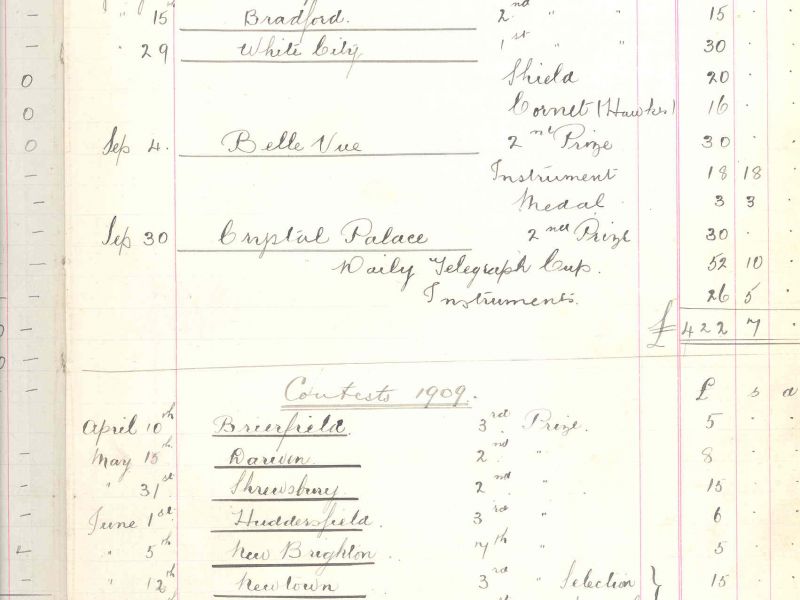 " 15th Bradford. 2nd " " 15 .
" 29 White City 1st " " 30 . .
Shield 20 . .
Cornet (Hawkes) 16 . .
Sep 4. Belle Vue 2nd Prize 30 . .
Instrument 18 18 .
Medal 3 3 .
Sep 30 Crystal Palace 2nd Prize 30 . .
Daily Telegraph Cup. 52 10 .
Instruments. 26 5 .
£ 422 7 .
Contests 1909. £ s d
April 10th Brierfield. 3rd Prize. 5 . .
May 15th Darwen. 2nd " 8 . .
" 31st Shrewsbury 2nd " 15 . .
June 1st. Huddersfield. 3rd " 6 . .
" 5th New Brighton 7th " 5 . .
" 12th Newtown 3rd " Selection } 15 . .